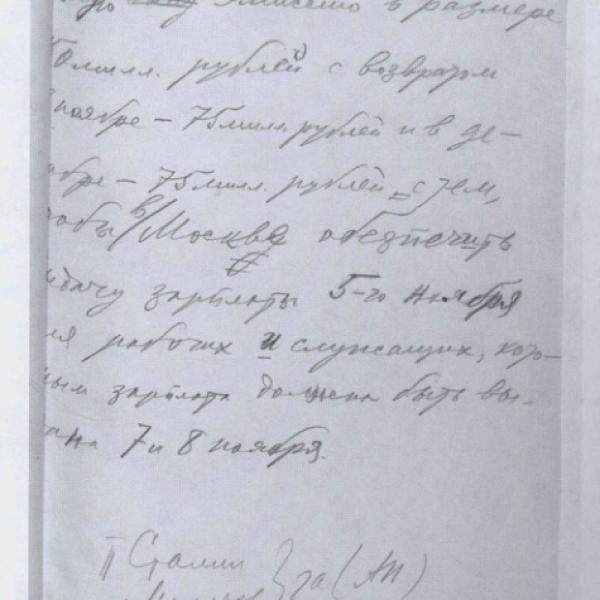 эмиссию в размере
0 милл. рублей с возвратом
ноябре – 75 милл. рублей и в де-
абре – 75 милл. рублей, с тем,
тобы в Москве обеспечить
ыдачу зарплаты 5-го ноября
ля рабочих и служащих, кото-
рым зарплата должна быть вы-
ана 7 и 8 ноября.
II Сталин
за (АП)